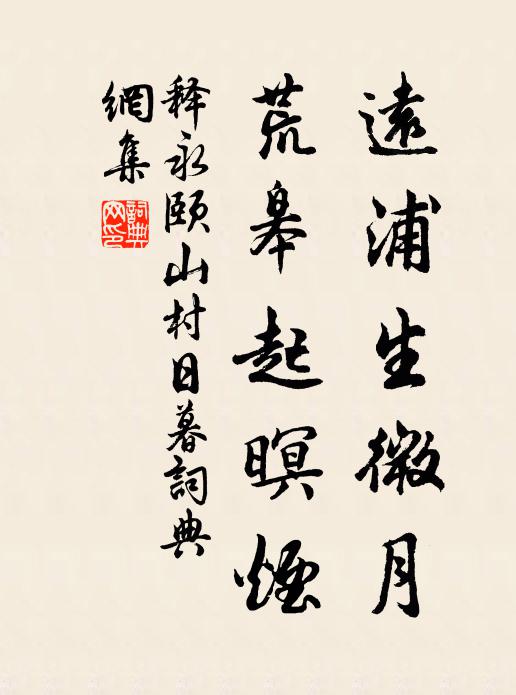 遠浦生微月
荒皋起暝煙
释永颐山村日暮詞典
網集
詞典
网印